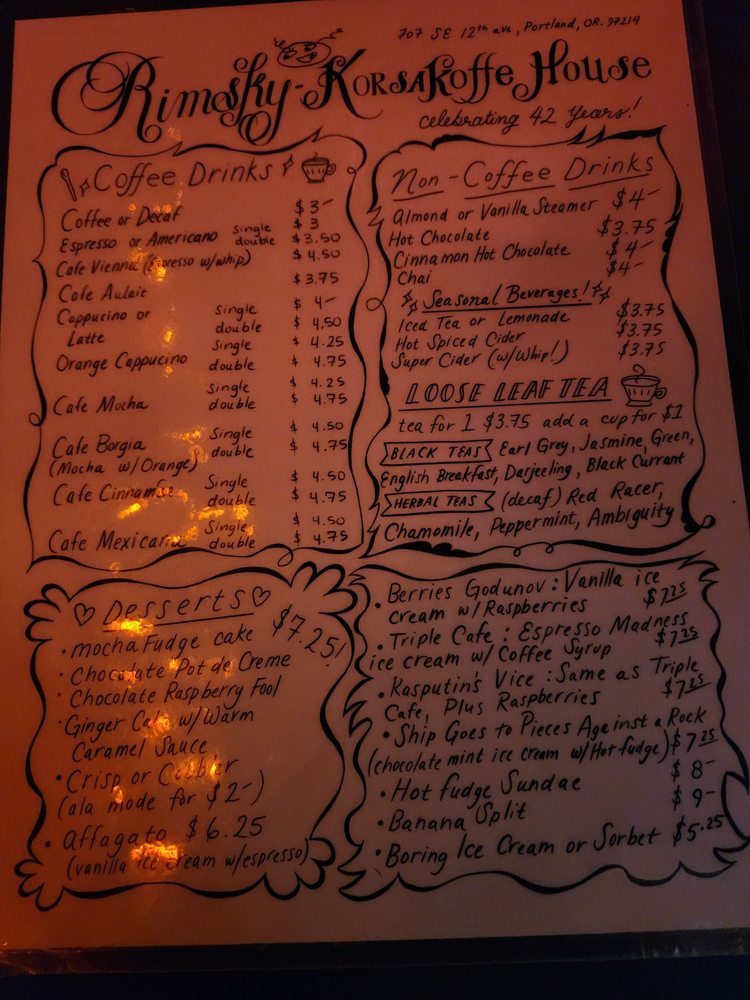 707 SE 12th ave, Portland, OR. 97214
Rimsky-Korsakoffe House
celebrating 42 years!
Coffee Drinks
Coffee or Decaf $3-
Espresso or Americano single $3
double $3.50
Cafe Vienna (Espresso w/whip) $4.50
Cafe Aulait $3.75
Cappucino or single $4-
Latte double $4.50
Orange Cappucino single $4.25
double $4.75
Cafe Mocha single $4.25
double $4.75
Cafe Borgia single $4.50
(Mocha w/Orange) double $4.75
Cafe Cinnamon single $4.50
double $4.75
Cafe Mexicana single $4.50
double $4.75
Non-Coffee Drinks
Almond or Vanilla Steamer $4-
Hot Chocolate $3.75
Cinnamon Hot Chocolate $4-
Chai $4-
Seasonal Beverages!
Iced Tea or Lemonade $3.75
Hot Spiced Cider $3.75
Super Cider (w/Whip!) $3.75
LOOSE LEAF TEA
tea for 1 $3.75 add a cup for $1
BLACK TEAS Earl Grey, Jasmine, Green,
English Breakfast, Darjeeling, Black Currant
HERBAL TEAS (decaf) Red Racer,
Chamomile, Peppermint, Ambiguity
Desserts
$7.25!
• mocha Fudge cake
• Chocolate Pot de Creme
• Chocolate Raspberry Fool
• Ginger Cake w/Warm
Caramel Sauce
• Crisp or Cobbler
(ala mode for $2-)
• Affagato $6.25
(vanilla ice cream w/espresso)
• Berries Godunov: Vanilla ice
cream w/Raspberries $7.25
• Triple Cafe: Espresso Madness
ice cream w/ Coffee Syrup $7.25
• Rasputin's Vice: Same as Triple
Cafe, Plus Raspberries $7.25
• Ship Goes to Pieces Against a Rock
(chocolate mint ice cream w/Hot fudge) $7.25
• Hot fudge Sundae $8-
• Banana Split $9-
• Boring Ice Cream or Sorbet $5.25